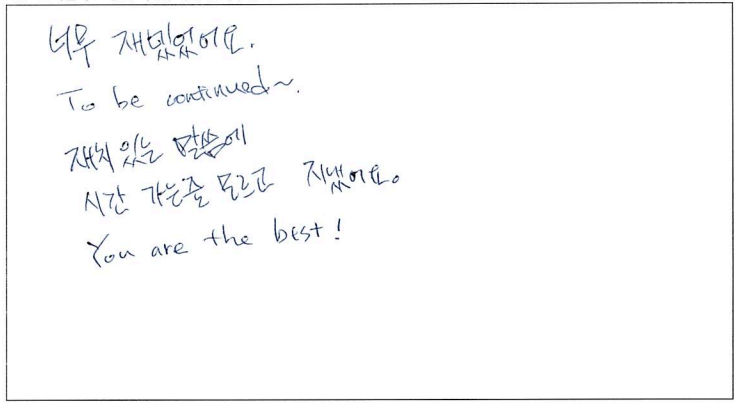 너무 재밌었어요.
To be continued~.
재치있는 말씀에
시간 가는줄 모르고 지냈어요.
You are the best!